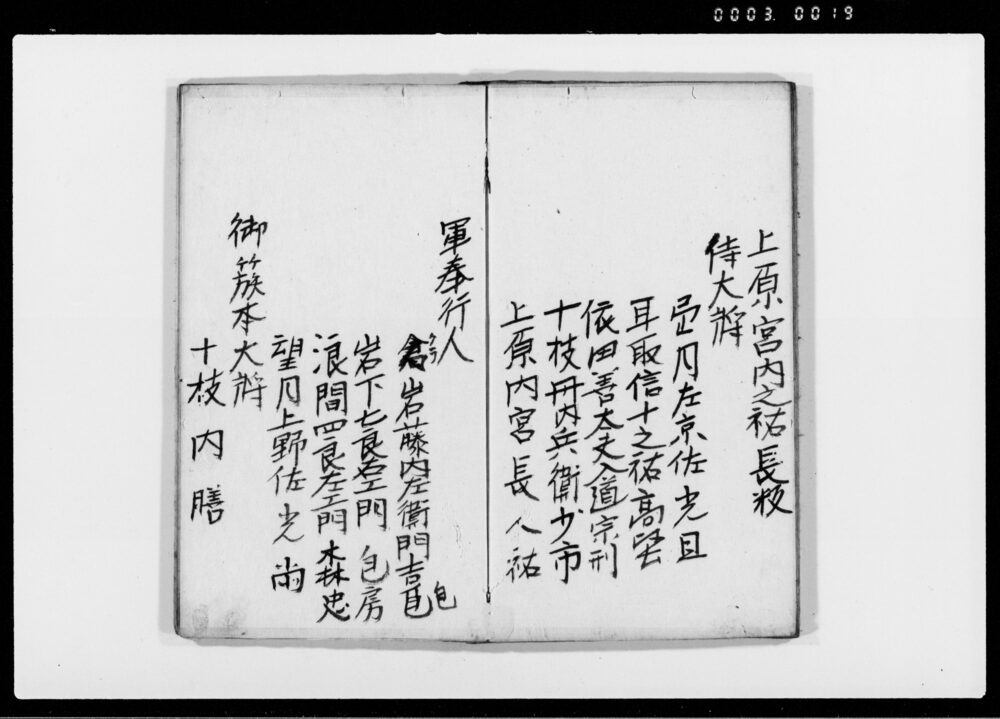 0003. 0019
上原宮内之祐長
侍大将
月左京佐光且
耳取信十之祐高堅
依田善太夫入道宗刑
十枝丹内兵衛少市
上原内宮長 人祐
軍奉行人
岩藤内左衛門吉 包
岩下七良右エ門 包房
浪間四良左エ門 森忠
望月上野佐光尚
御簱本大将
十枝内膳